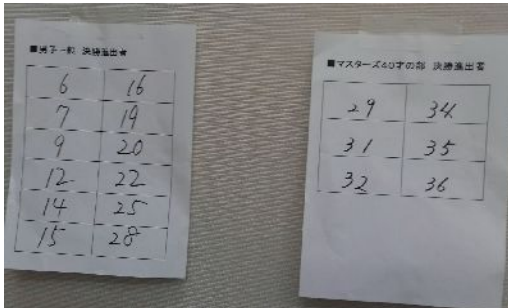 ■男子一般 決勝進出者
6 16
7 19
9 20
12 22
14 25
15 28
■マスターズ40才の部 決勝進出者
29 34
31 35
32 36